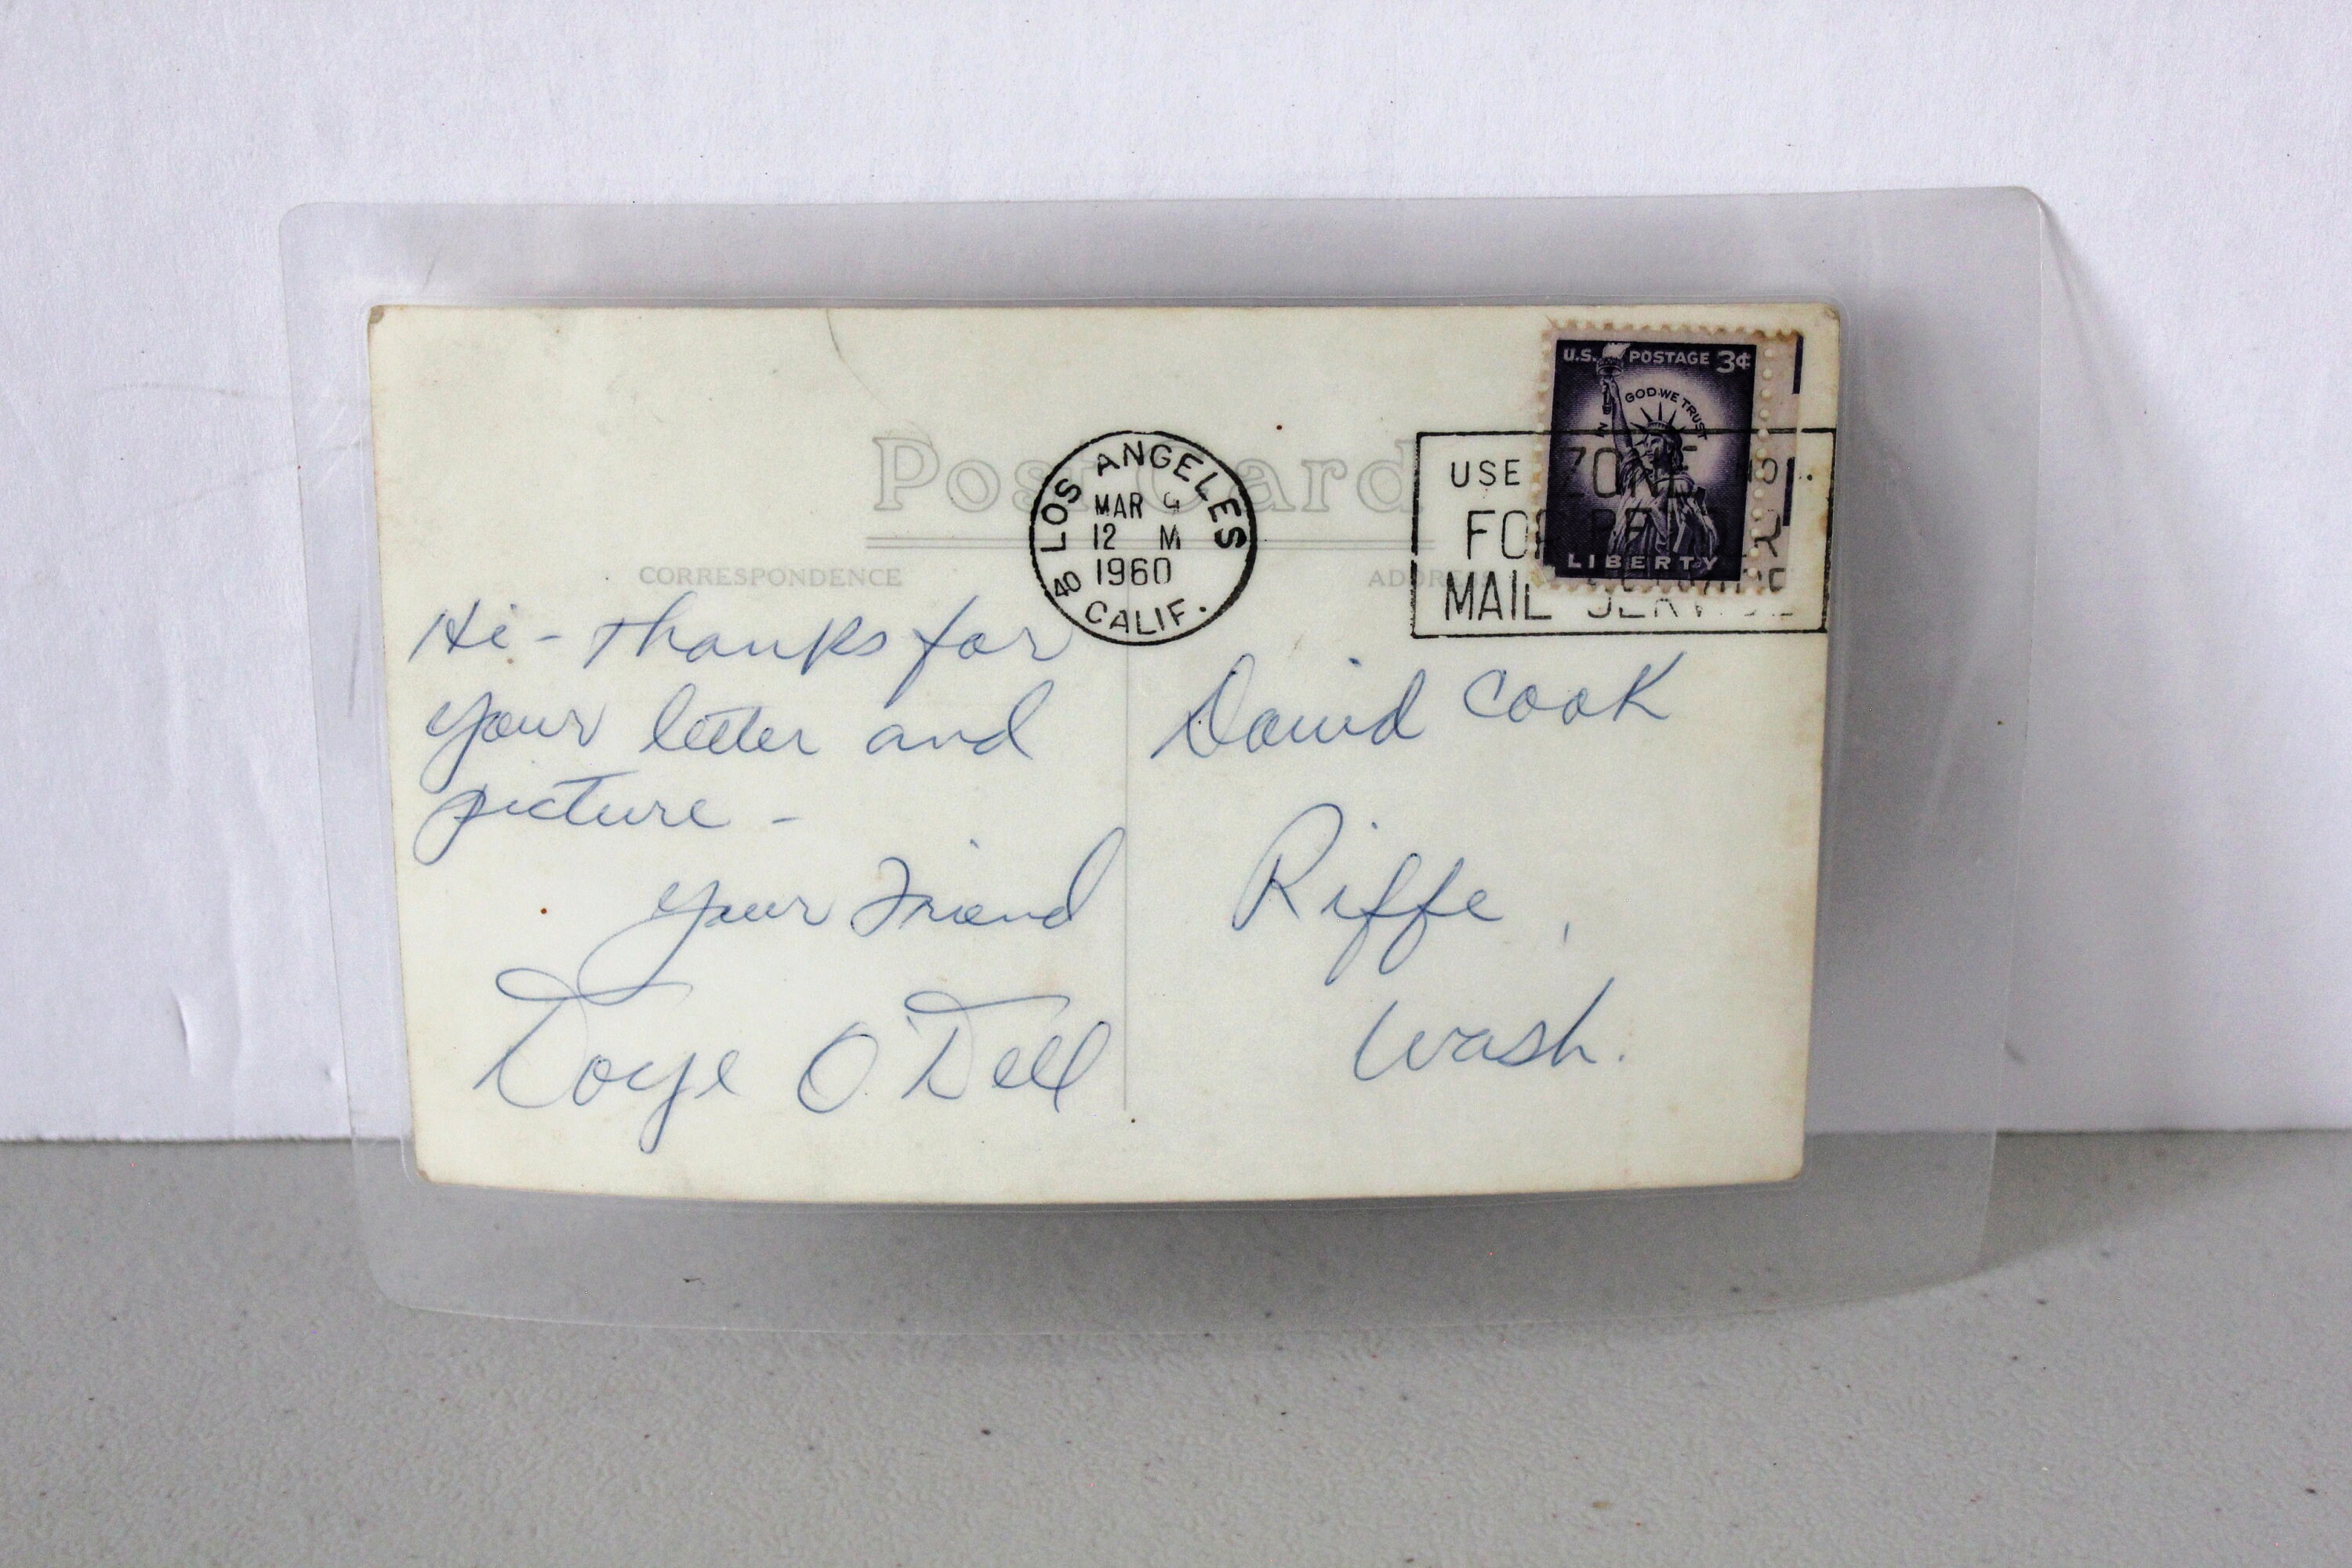 U.S. POSTAGE 3¢
IN GOD WE TRUST
LIBERTY
Post Card
LOS ANGELES
MAR
12 M
1960
40 CALIF.
USE ZONE NO.
FOR BETTER
MAIL SERVICE
CORRESPONDENCE
ADDRESS
Hi - Thanks for
your letter and
picture -
your Friend
Doye O'Dell
David Cook
Riffe,
Wash.